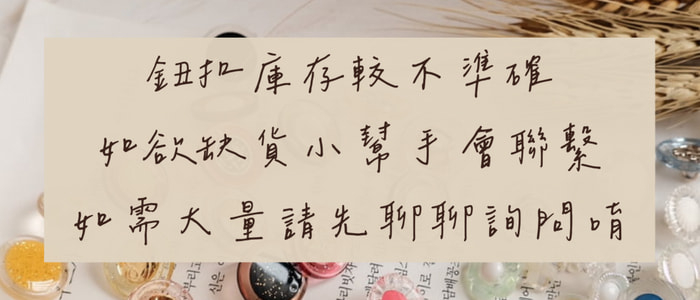 鈕扣庫存較不準確
如欲缺貨小幫手會聯繫
如需大量請先聊聊詢問唷